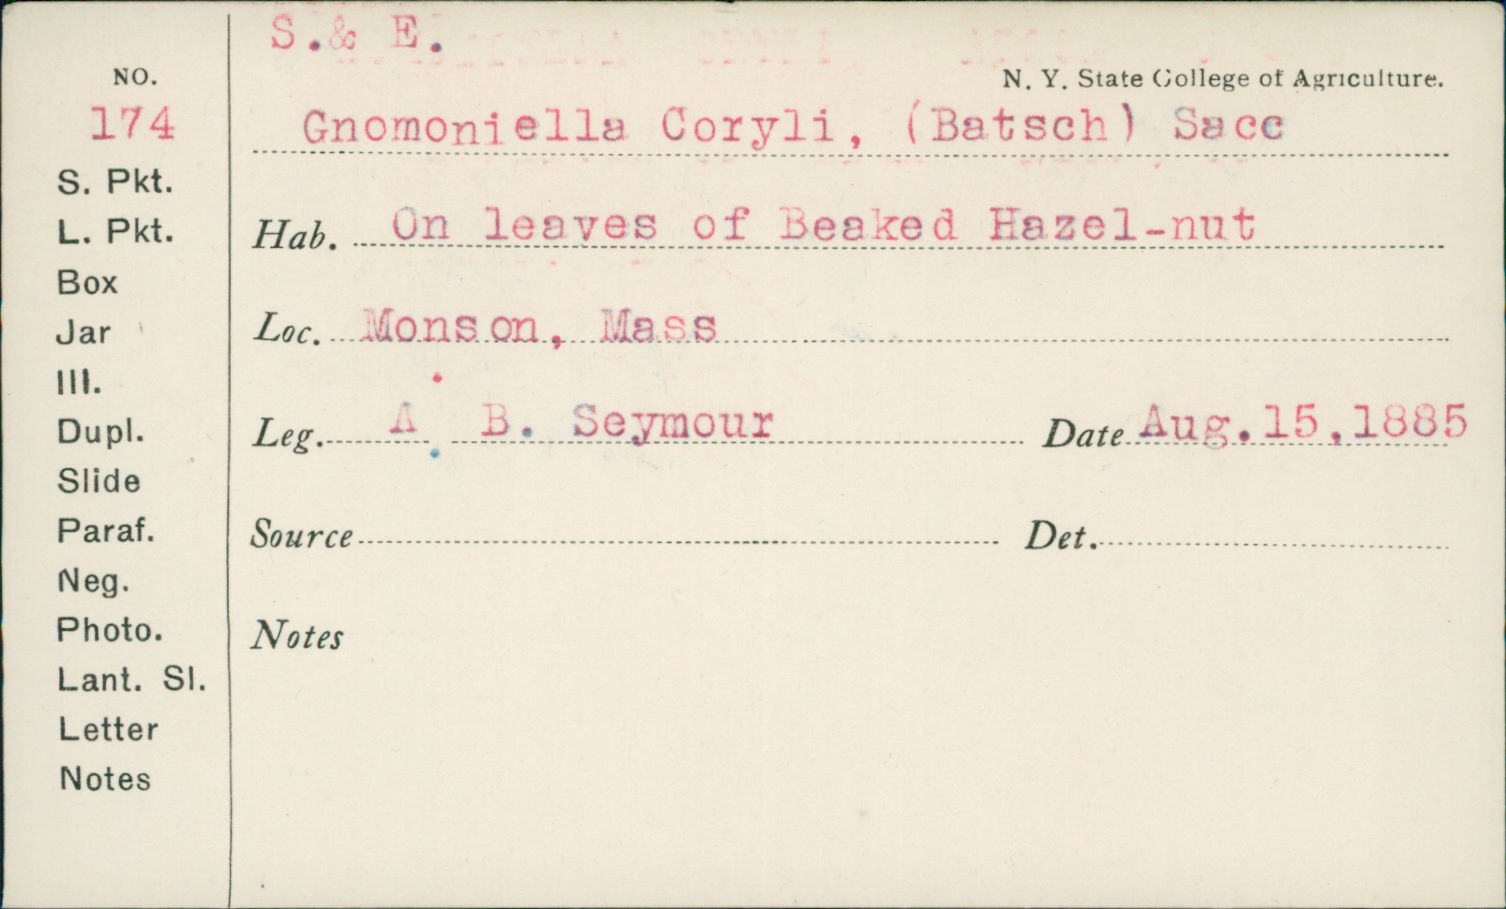 S.& E.
NO.
N. Y. State College of Agriculture.
174
Gnomoniella Coryli, (Batsch) Sacc
S. Pkt.
L. Pkt.
Hab. On leaves of Beaked Hazel-nut
Box
Jar
Loc. Monson, Mass
Ill.
Dupl.
Leg. A. B. Seymour Date Aug.15,1885
Slide
Paraf.
Source Det.
Neg.
Photo.
Notes
Lant. Sl.
Letter
Notes